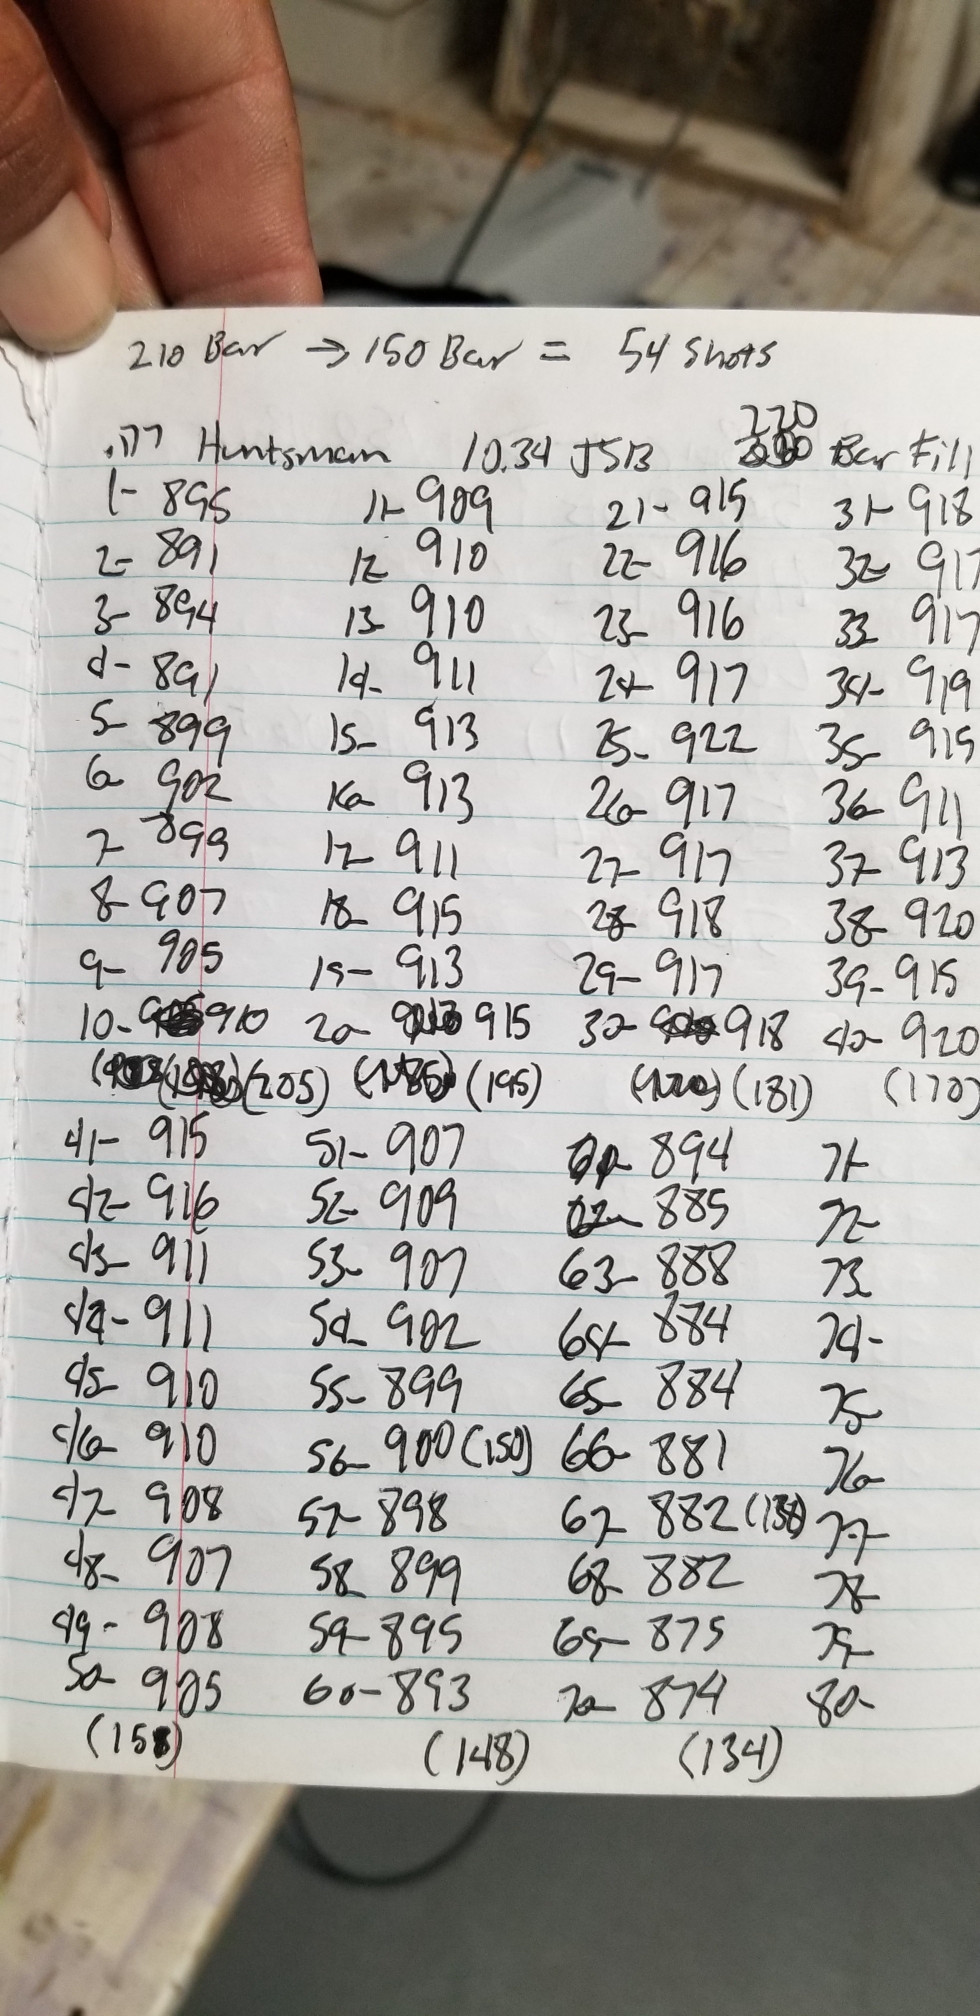 210 Bar → 150 Bar = 54 Shots
220
.177 Huntsman 10.34 JSB Bar Fill
1- 895 11- 909 21- 915 31- 918
2- 891 12- 910 22- 916 32- 917
3- 894 13- 910 23- 916 33- 917
4- 891 14- 911 24- 917 34- 919
5- 899 15- 913 25- 922 35- 915
6- 902 16- 913 26- 917 36- 911
7- 899 17- 911 27- 917 37- 913
8- 907 18- 915 28- 918 38- 920
9- 905 19- 913 29- 917 39- 915
10- 910 20- 915 30- 918 40- 920
(205) (195) (181) (170)
41- 915 51- 907 61- 894 71-
42- 916 52- 909 62- 885 72-
43- 911 53- 907 63- 888 73
44- 911 54- 902 64- 884 74-
45- 910 55- 899 65- 884 75
46- 910 56- 900 (150) 66- 881 76-
47- 908 57- 898 67- 882 (138) 77-
48- 907 58- 899 68- 882 78-
49- 908 59- 895 69- 875 79-
50- 905 60- 893 70- 874 80-
(158) (148) (134)